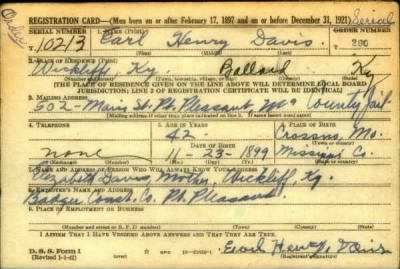 Order
REGISTRATION CARD—(Men born on or after February 17, 1897 and on or before December 31, 1921) Serial
SERIAL NUMBER 1. NAME (Print) ORDER NUMBER
10213 Earl Henry Davis
(First) (Middle) (Last)
2. PLACE OF RESIDENCE (Print)
Wickliffe Ky. Ballard Ky
(Number and street) (Town, township, village, or city) (County) (State)
[THE PLACE OF RESIDENCE GIVEN ON THE LINE ABOVE WILL DETERMINE LOCAL BOARD
JURISDICTION; LINE 2 OF REGISTRATION CERTIFICATE WILL BE IDENTICAL]
3. MAILING ADDRESS
502 - Main St. Pt. Pleasant, County Jail
[Mailing address if other than place indicated on line 2. If same insert word same]
4. TELEPHONE 5. AGE IN YEARS 6. PLACE OF BIRTH
42 Mo.
DATE OF BIRTH (Town or county)
none 11-23-1899 Mississippi Co.
(Exchange) (Number) (Mo.) (Day) (Yr.) (State or country)
7. NAME AND ADDRESS OF PERSON WHO WILL ALWAYS KNOW YOUR ADDRESS
Davis, Mother, Wickliff, Ky.
8. EMPLOYER'S NAME AND ADDRESS
Const. Co. Pt. Pleasant
9. PLACE OF EMPLOYMENT OR BUSINESS
(Number and street or R. F. D. number) (Town) (County) (State)
I AFFIRM THAT I HAVE VERIFIED ABOVE ANSWERS AND THAT THEY ARE TRUE.
D. S. S. Form 1 Henry Davis
(Revised 1-1-42) (over) (Registrant's signature)